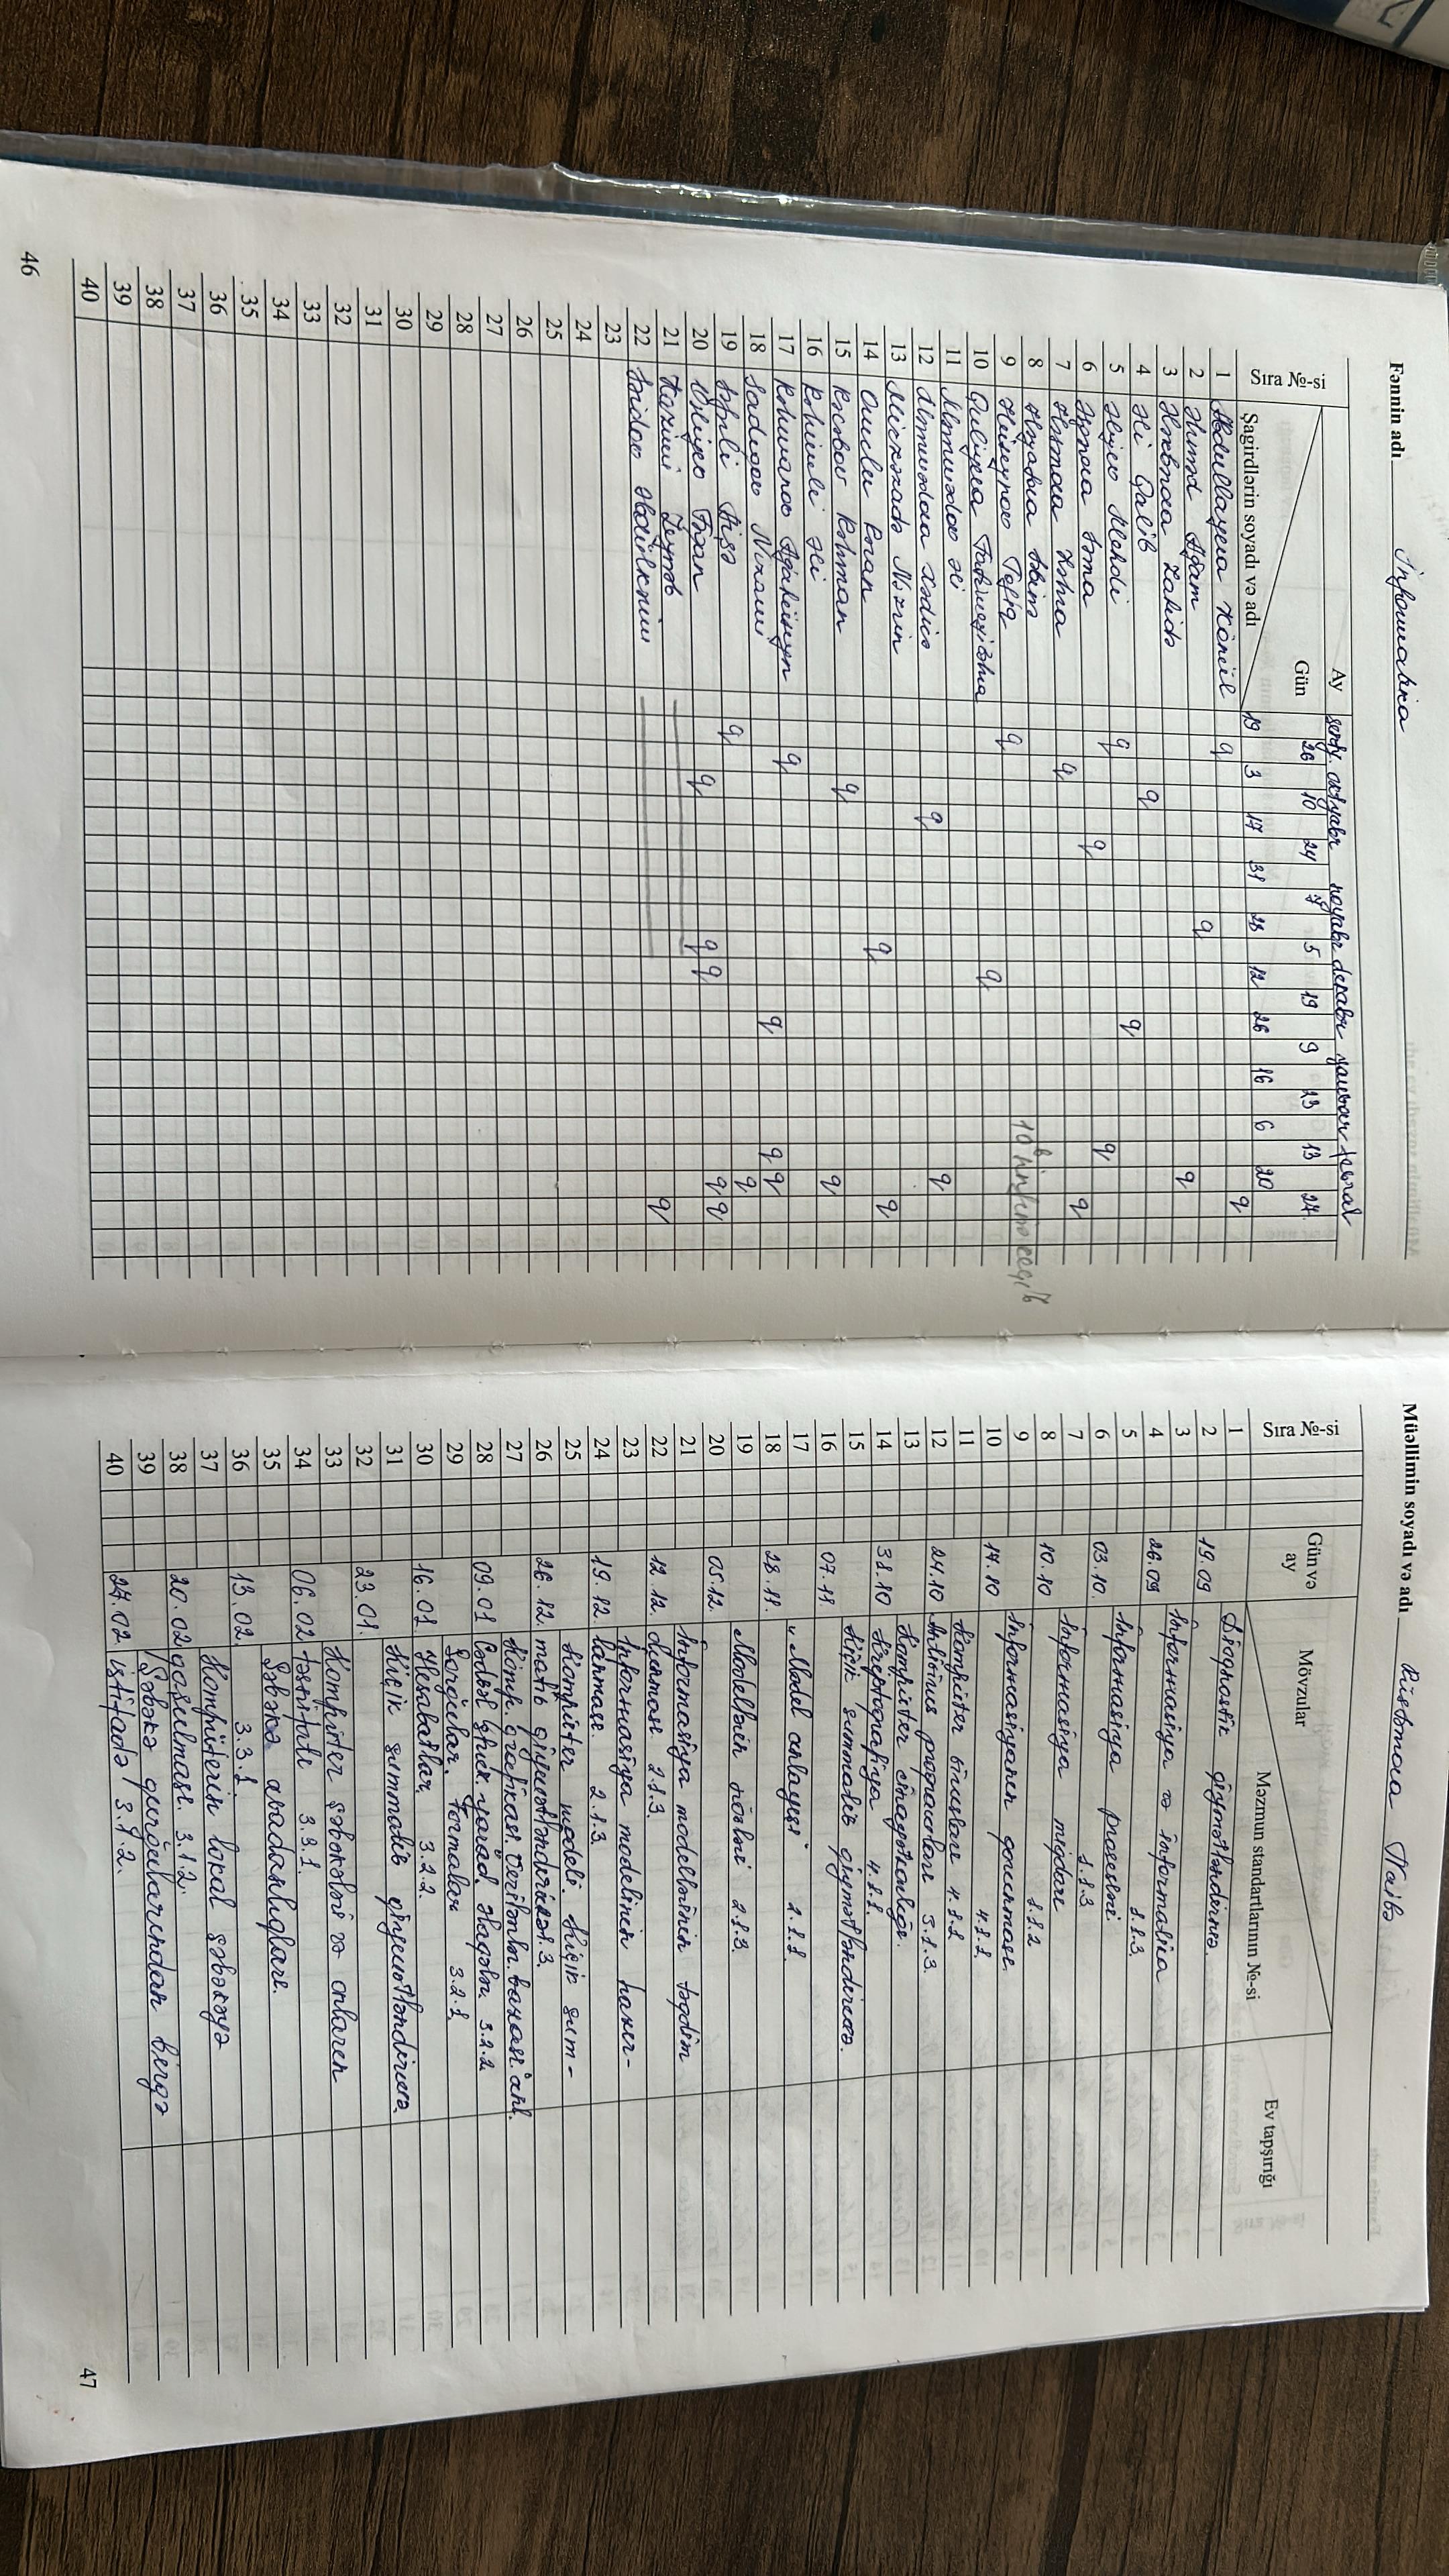 Fənnin adı İnformatika
Ay senty. oktyabr noyabr dekabr yanvar fevral
Gün 26 10 24 7 5 19 9 23 13 27
Sıra №-si
Şagirdlərin soyadı və adı 19 3 17 31 28 12 26 16 6 20
1 Abdullayeva Könül q q
2 Əhməd Ağam q
3 Zahidə q
4 Əli Qalib q
5 Əliyev Mehdi q q
6 Səma q q
7 Zəhra q q
8 Səbinə
10 b sinfinə keçib
9 Hüseynov Tofiq q
10 Quliyeva Fatiməyizəhra q
11 Məmmədov Əli
12 Məmmədova Xədicə q q
13 Mirzəzadə Nəzrin
14 Rəvan q q
15 Rəcəbov Rəhman q
16 Rəhimli Əli q
17 Rəhmanov Ağahüseyn q
18 Sadıqov Nizami q q q
19 Səfərli Aişə q q
20 Vəliyev q q q q q
21 Kazimi Zeynəb
22 Əbdülkərim q
23
24
25
26
27
28
29
30
31
32
33
34
35
36
37
38
39
40
46
Müəllimin soyadı və adı Rüstəmova Naibə
Sıra №-si
Gün və ay
Mövzular
Məzmun standartlarının №-si
Ev tapşırığı
1 Diaqnostik qiymətləndirmə.
2 19.09
3 İnformasiya və informatika
4 26.09 1.1.3.
5 İnformasiya prosesləri
6 03.10. 1.1.3
7 İnformasiya miqdarı
8 10.10 1.1.2
9 İnformasiyanın qorunması.
10 17.10 4.1.1.
11 Kompüter virusları 4.1.1
12 24.10 Antivirus proqramları 3.1.3.
13 Kompüter cinayətkarlığı.
14 31.10 Kriptoqrafiya 4.1.1.
15 Kiçik summativ qiymətləndirmə.
16 07.11.
17 "Model anlayışı" 2.1.1.
18 28.11.
19 Modellərin növləri 2.1.3.
20 05.12.
21 İnformasiya modellərinin təqdim
22 12.12. olunması. 2.1.3.
23 İnformasiya modelinin hazır-
24 19.12. lanması. 2.1.3.
25 Kompüter modeli. Kiçik sum-
26 26.12. mativ qiymətləndirmə 1.3.
27 Komp. qrafikası. Verilənlər. bazası. anl.
28 09.01 Cədvəl struk. yarad. Əlaqələr. 3.2.2
29 Sorğular. Formalar 3.2.1
30 16.01 Hesabatlar. 3.2.2.
31 Kiçik summativ qiymətləndirmə.
32 23.01.
33 Kompüter şəbəkələri və onların
34 06.02 təsnifatı 3.3.1.
35 Şəbəkə avadanlıqları.
36 13.02. 3.3.1.
37 Kompüterin lokal şəbəkəyə
38 20.02 qoşulması. 3.1.2.
39 Şəbəkə qurğularından birgə
40 27.02. istifadə 3.1.2.
47